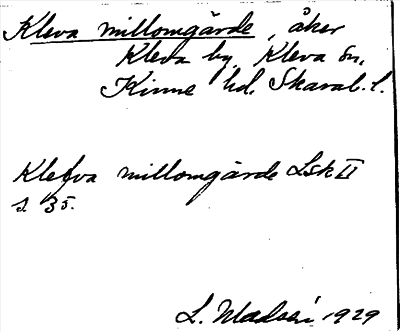 Kleva millomgärde, åker
Kleva by, Kleva sn,
Kinne hd. Skarab. l.
Klefva millomgärde Lsk II
s. 35.
L. Madsén 1929